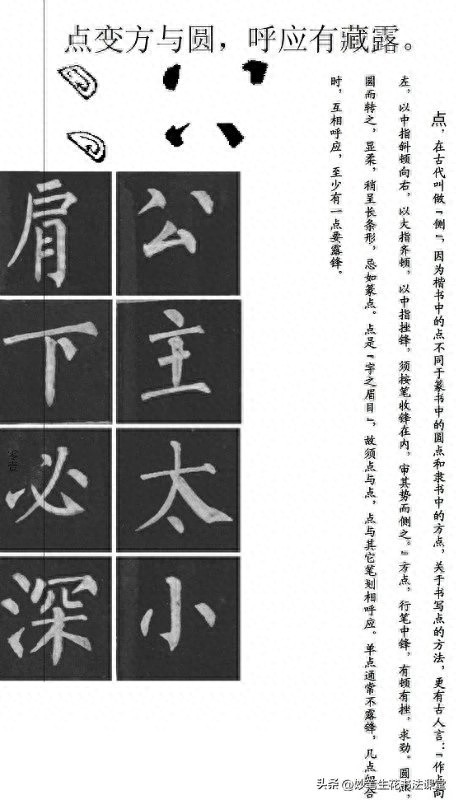 点变方与圆，呼应有藏露。
点，在古代叫做“侧”，因为楷书中的点不同于篆书中的圆点和隶书中的方点，关于书写点的方法，更有古人言：“作点向
左，以中指斜顿向右，以大指齐顿，以中指挫锋，须按笔收锋在内，审其势而侧之。”方点，行笔中锋，有顿有挫，求劲。圆点，
圆而转之，显柔，稍呈长条形，忌如篆点。点是“字之眉目”，故须点与点，点与其它笔划相呼应。单点通常不露锋，几点组合
时，互相呼应，至少有一点要露锋。
公 肩
主 下
太 必
小 深
头条 @妙笔生花书法课堂